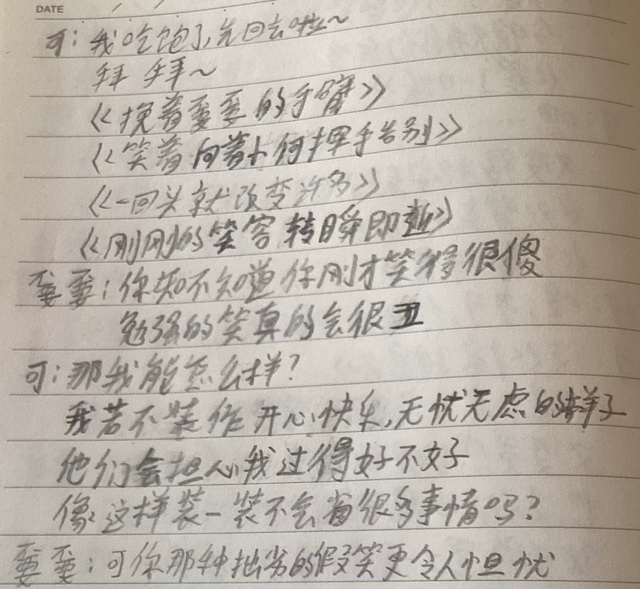 DATE
可：我吃饱了，先回去啦~
拜拜~
《挽着雯雯的手臂》
《笑着向萝卜何挥手告别》
《一回头就改变许多》
《刚刚的笑容转瞬即逝》
雯雯：你知不知道你刚才笑得很傻
勉强的笑真的会很丑
可：那我能怎么样？
我若不装作开心快乐，无忧无虑的样子
他们会担心我过得好不好
像这样装一装不会省很多事情吗？
雯雯：可你那种拙劣的假笑更令人担忧